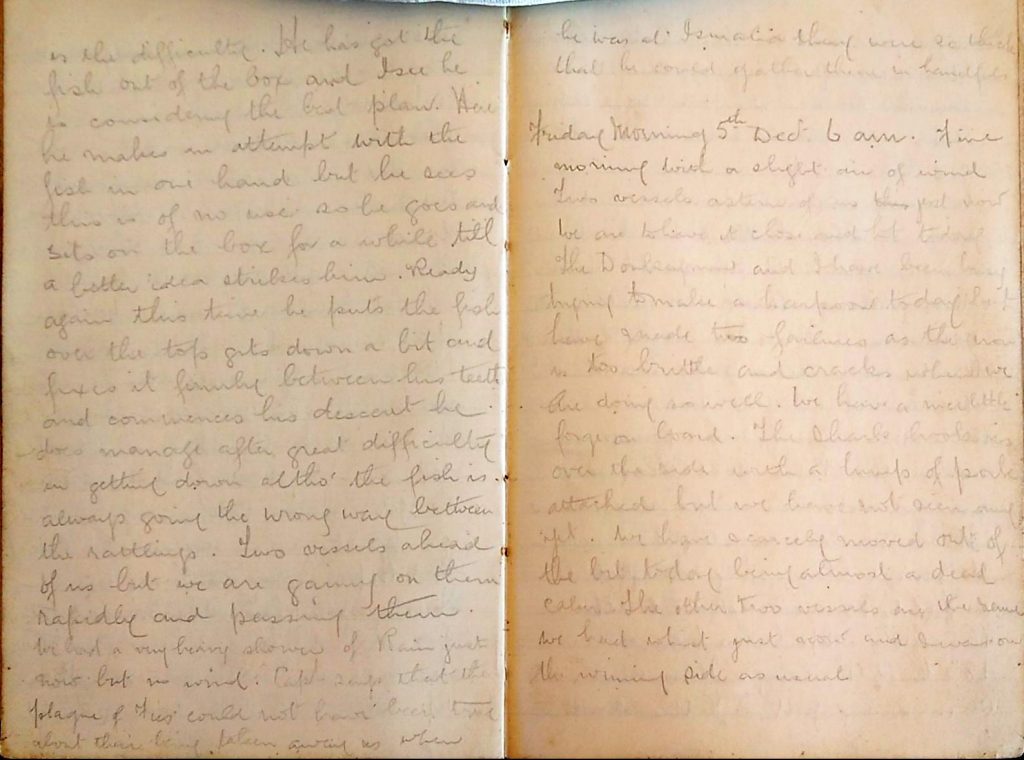 is the difficulty. He has got the
fish out of the box and I see he
is considering the best plan. Here
he makes an attempt with the
fish in one hand but he sees
this is of no use so he goes and
sits on the box for a while till
a better idea strikes him. Ready
again this time he puts the fish
over the top gets down a bit and
fixes it firmly between his teeth
and commences his descent he
does manage after great difficulty
in getting down altho' the fish is
always going the wrong way between
the rattlings. Two vessels ahead
of us but we are gaining on them
rapidly and passing them.
We had a very heavy shower of Rain just
now but no wind. Capt says that the
plague of flies could not have been true
about their being taken away as when
he was at Ismalia they were so thick
that he could gather them in handfuls
Friday Morning 5th Dec. 6 am. Fine
morning with a slight air of wind
Two vessels astern of us just now
We are to have it close and hot today
The Donkeyman and I have been busy
trying to make a harpoon today but
have made two failures as the iron
is too brittle and cracks when we
are doing so well. We have a little
forge on board. The Shark hook is
over the side with a lump of pork
attached but we have not seen any
yet. We have scarcely moved out of
the bit today being almost a dead
calm. The other two vessels are the same
we had just now and I was on
the winning side as usual